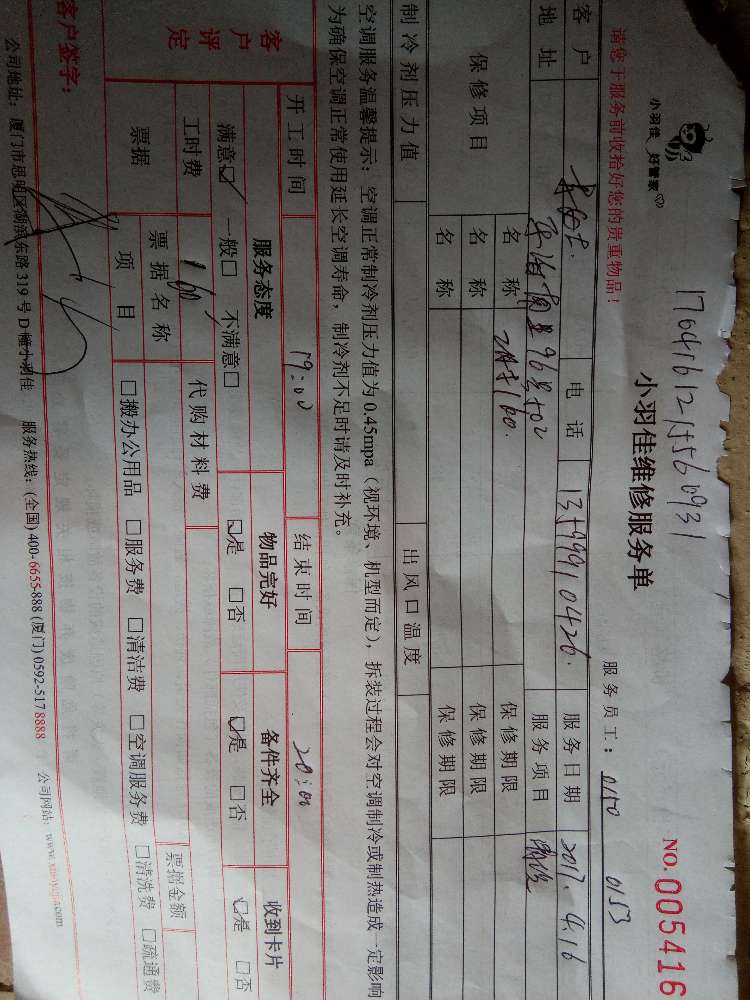 小羽佳 好管家
1704161215560931
小羽佳维修服务单
NO. 005416
请您于服务前收拾好您的贵重物品！
服务员工： 0150 0153
客户 电话 13599910426. 服务日期 2017.4.16
地址 96号 502 服务项目
保修项目 名称 160. 保修期限
名称 保修期限
名称 保修期限
制冷剂压力值 出风口温度
空调服务温馨提示：空调正常制冷剂压力值为 0.45mpa（视环境、机型而定），拆装过程会对空调制冷或制热造成一定影响
为确保空调正常使用延长空调寿命，制冷剂不足时请及时补充。
开工时间 19:00 结束时间 20:00
客户评定 服务态度 物品完好 备件齐全 收到卡片
满意☑ 一般□ 不满意□ ☑是 □否 ☑是 □否 ☑是 □否
工时费 160 代购材料费
票据 票据名称 票据金额
项目 □搬办公用品 □服务费 □清洁费 □空调服务费 □清洗费 □疏通费
客户签字：
公司地址：厦门市思明区湖滨东路 319 号 D 幢小羽佳 服务热线：(全国) 400-6655-888 (厦门) 0592-5178888 公司网站：www.xiaoyujia.com